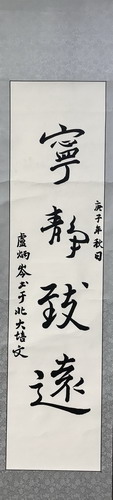 庚子年秋日
寧靜致遠
盧炳岑書于北大培文